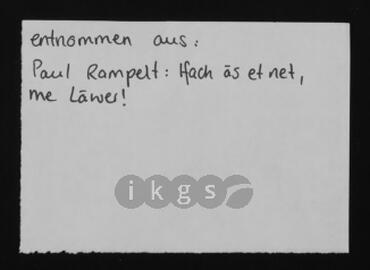 entnommen aus:
Paul Rampelt: Ifach äs et net,
me Läwer!
ikgs